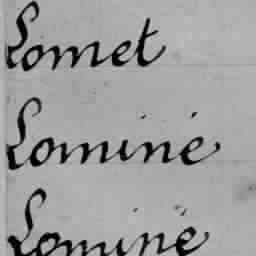 Lomet
Lominé
Lominé